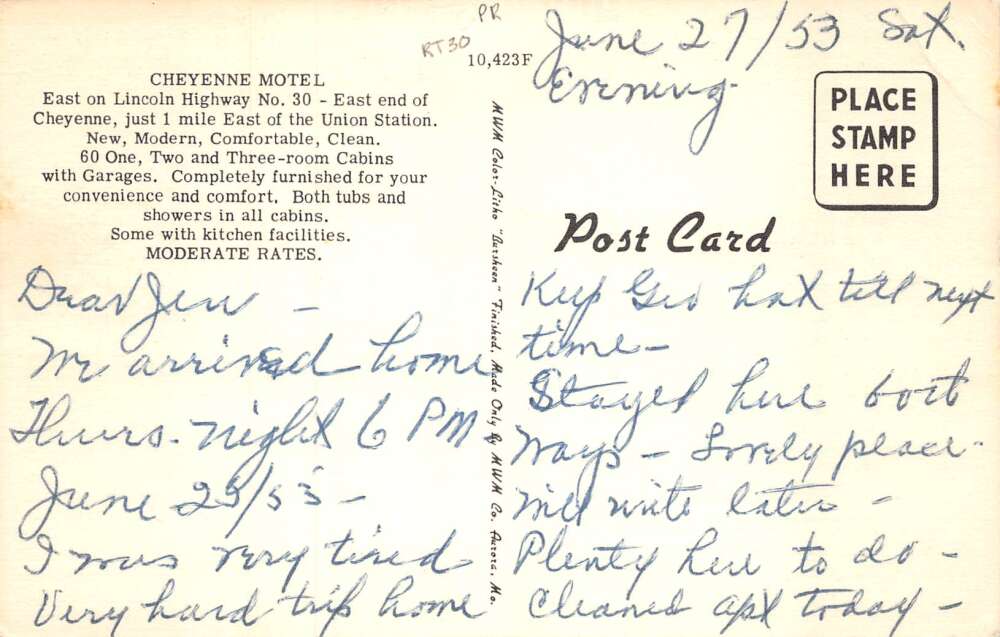 PR
RT30
10,423F
CHEYENNE MOTEL
East on Lincoln Highway No. 30 - East end of
Cheyenne, just 1 mile East of the Union Station.
New, Modern, Comfortable, Clean.
60 One, Two and Three-room Cabins
with Garages. Completely furnished for your
convenience and comfort. Both tubs and
showers in all cabins.
Some with kitchen facilities.
MODERATE RATES.
Dear Jen -
We arrived home
Thurs. night 6 PM
June 25/53 -
I was very tired
Very hard trip home
MWM Color-Litho "Bursheen" Finished, Made Only By MWM Co. Aurora, Mo.
June 27/53 Sat.
Evening
PLACE
STAMP
HERE
Post Card
Keep Geo hat till next
time -
Stayed here both
ways - Lovely place -
will write later -
Plenty here to do -
Cleaned apt today -